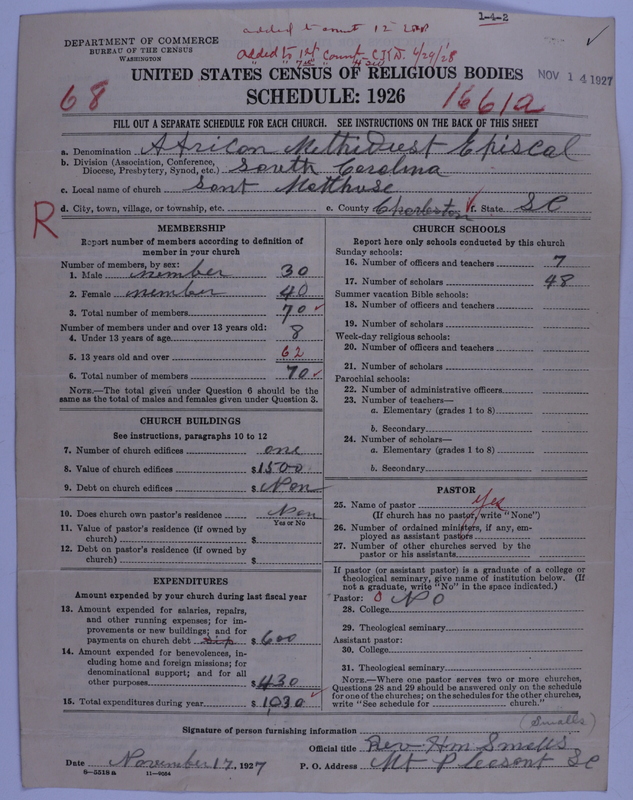 1-4-2
added to count 12
DEPARTMENT OF COMMERCE
BUREAU OF THE CENSUS
WASHINGTON
added to 1st count C.K.D. 6/29/28
UNITED STATES CENSUS OF RELIGIOUS BODIES
NOV 14 1927
68
SCHEDULE: 1926
1661a
FILL OUT A SEPARATE SCHEDULE FOR EACH CHURCH. SEE INSTRUCTIONS ON THE BACK OF THIS SHEET
a. Denomination African Methidust Episcal
b. Division (Association, Conference, Diocese, Presbytery, Synod, etc.) South Carolina
c. Local name of church Sant Matthuse
d. City, town, village, or township, etc. e. County Charleston f. State SC
R
MEMBERSHIP
Report number of members according to definition of
member in your church
Number of members, by sex:
1. Male member 30
2. Female member 40
3. Total number of members 70 ✓
Number of members under and over 13 years old:
4. Under 13 years of age 8
5. 13 years old and over 62
6. Total number of members 70 ✓
NOTE.—The total given under Question 6 should be
same as the total of males and females given under Question 3.
CHURCH BUILDINGS
See instructions, paragraphs 10 to 12
7. Number of church edifices one
8. Value of church edifices $1500
9. Debt on church edifices $ Non
10. Does church own pastor's residence Non
Yes or No
11. Value of pastor's residence (if owned by
church) $
12. Debt on pastor's residence (if owned by
church) $
EXPENDITURES
Amount expended by your church during last fiscal year
13. Amount expended for salaries, repairs,
and other running expenses; for im-
provements or new buildings; and for
payments on church debt $600
14. Amount expended for benevolences, in-
cluding home and foreign missions; for
denominational support; and for all
other purposes $430
15. Total expenditures during year $1030 ✓
CHURCH SCHOOLS
Report here only schools conducted by this church
Sunday schools:
16. Number of officers and teachers 7
17. Number of scholars 48
Summer vacation Bible schools:
18. Number of officers and teachers
19. Number of scholars
Week-day religious schools:
20. Number of officers and teachers
21. Number of scholars
Parochial schools:
22. Number of administrative officers
23. Number of teachers—
a. Elementary (grades 1 to 8)
b. Secondary
24. Number of scholars—
a. Elementary (grades 1 to 8)
b. Secondary
PASTOR
25. Name of pastor Yes
(If church has no pastor, write "None")
26. Number of ordained ministers, if any, em-
ployed as assistant pastors
27. Number of other churches served by the
pastor or his assistants
If pastor (or assistant pastor) is a graduate of a college or
theological seminary, give name of institution below. (If
not a graduate, write "No" in the space indicated.)
Pastor: 0 No
28. College
29. Theological seminary
Assistant pastor:
30. College
31. Theological seminary
NOTE.—Where one pastor serves two or more churches,
Questions 28 and 29 should be answered only on the schedule
for one of the churches; on the schedules for the other churches,
write "See schedule for church."
(Smalls)
Signature of person furnishing information
Official title Rev Hm Smalls
Date November 17, 1927 P. O. Address Mt Pleesont SC
8—5518a 11—9054